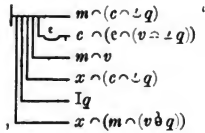 m⌢(c⌢∸q) ‘
e c⌢(e⌢(v⌢∸q))
m⌢v
x⌢(c⌢∸q)
Iq
, x⌢(m⌢(v ὃ q))